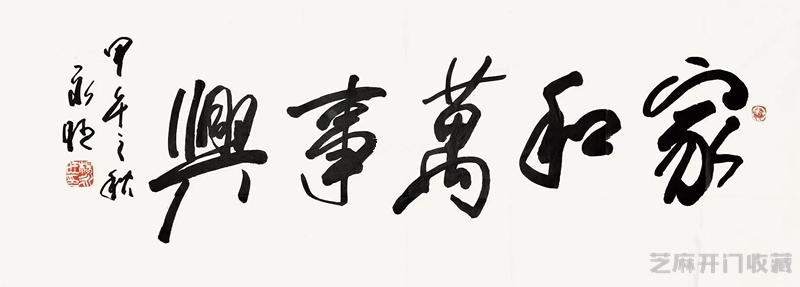 家和萬事興
甲午之秋
永
芝麻开门收藏